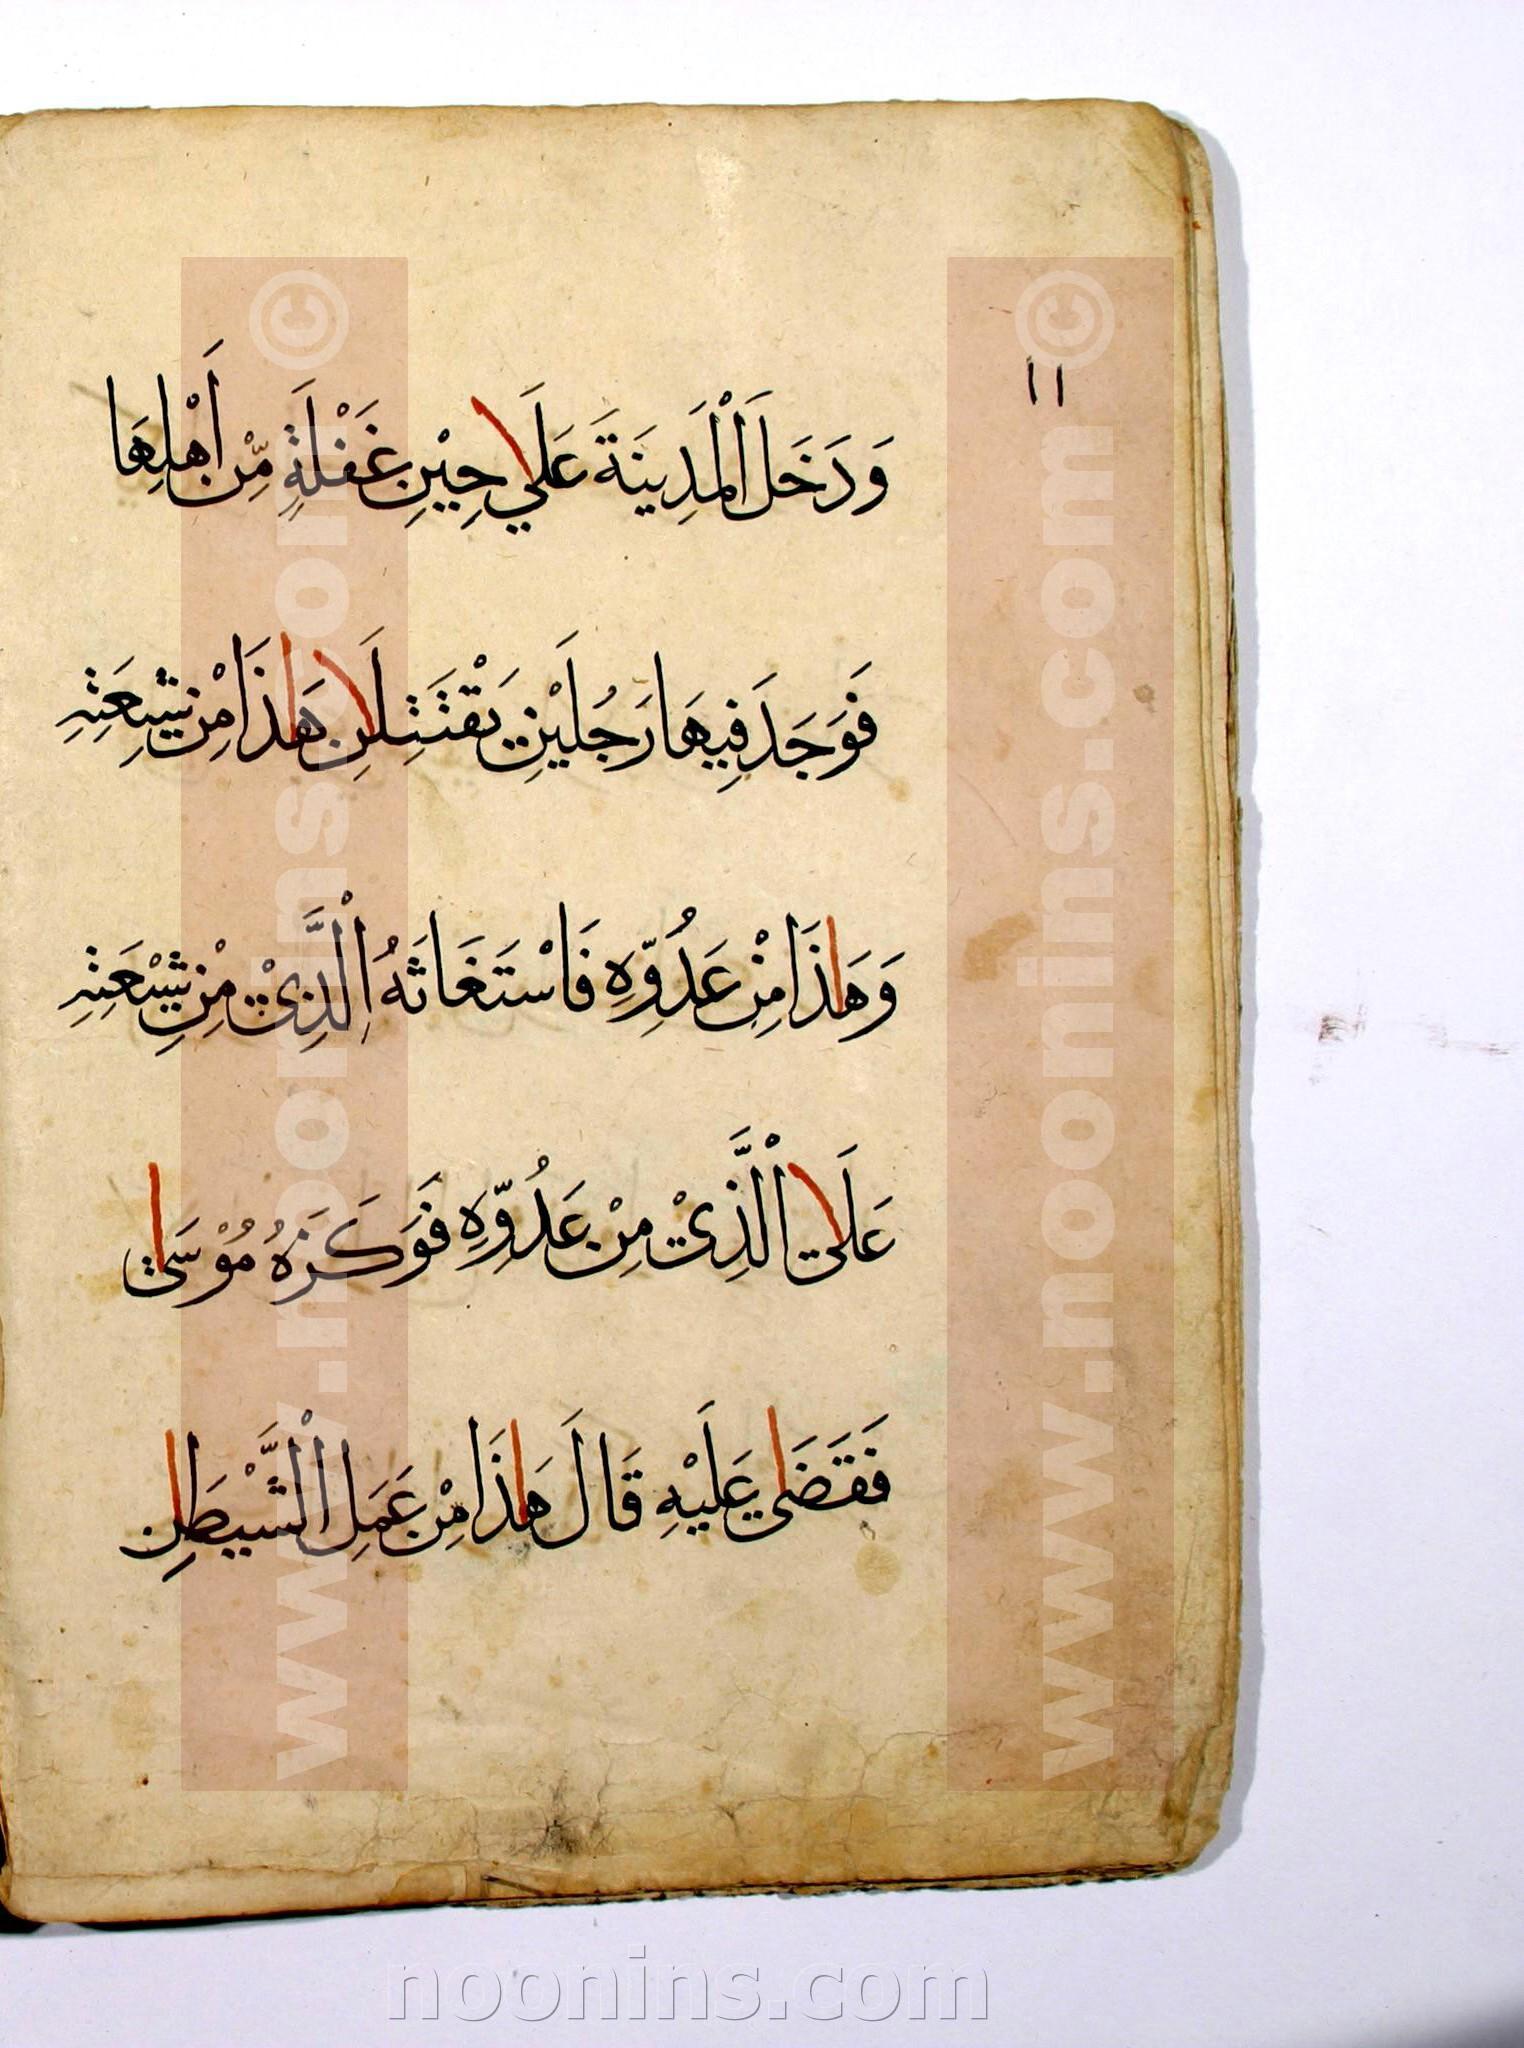 ١١
وَدَخَلَ الْمَدِينَةَ عَلَاي حِيْنِ غَفْلَةٍ مِّنْ أَهْلِهَا
فَوَجَدَ فِيهَا رَجُلَيْنِ يَقْتَتِلَانِ هَاذَا مِنْ شِيعَتِهِ
وَهَاذَا مِنْ عَدُوِّهِ فَاسْتَغَاثَهُ الَّذِيْ مِنْ شِيْعَتِهِ
عَلَاي الَّذِيْ مِنْ عَدُوِّهِ فَوَكَزَهُ مُوْسَاي
فَقَضَاي عَلَيْهِ قَالَ هَاذَا مِنْ عَمَلِ الشَّيْطَانِ
www.noonins.com ©
www.noonins.com ©
noonins.com